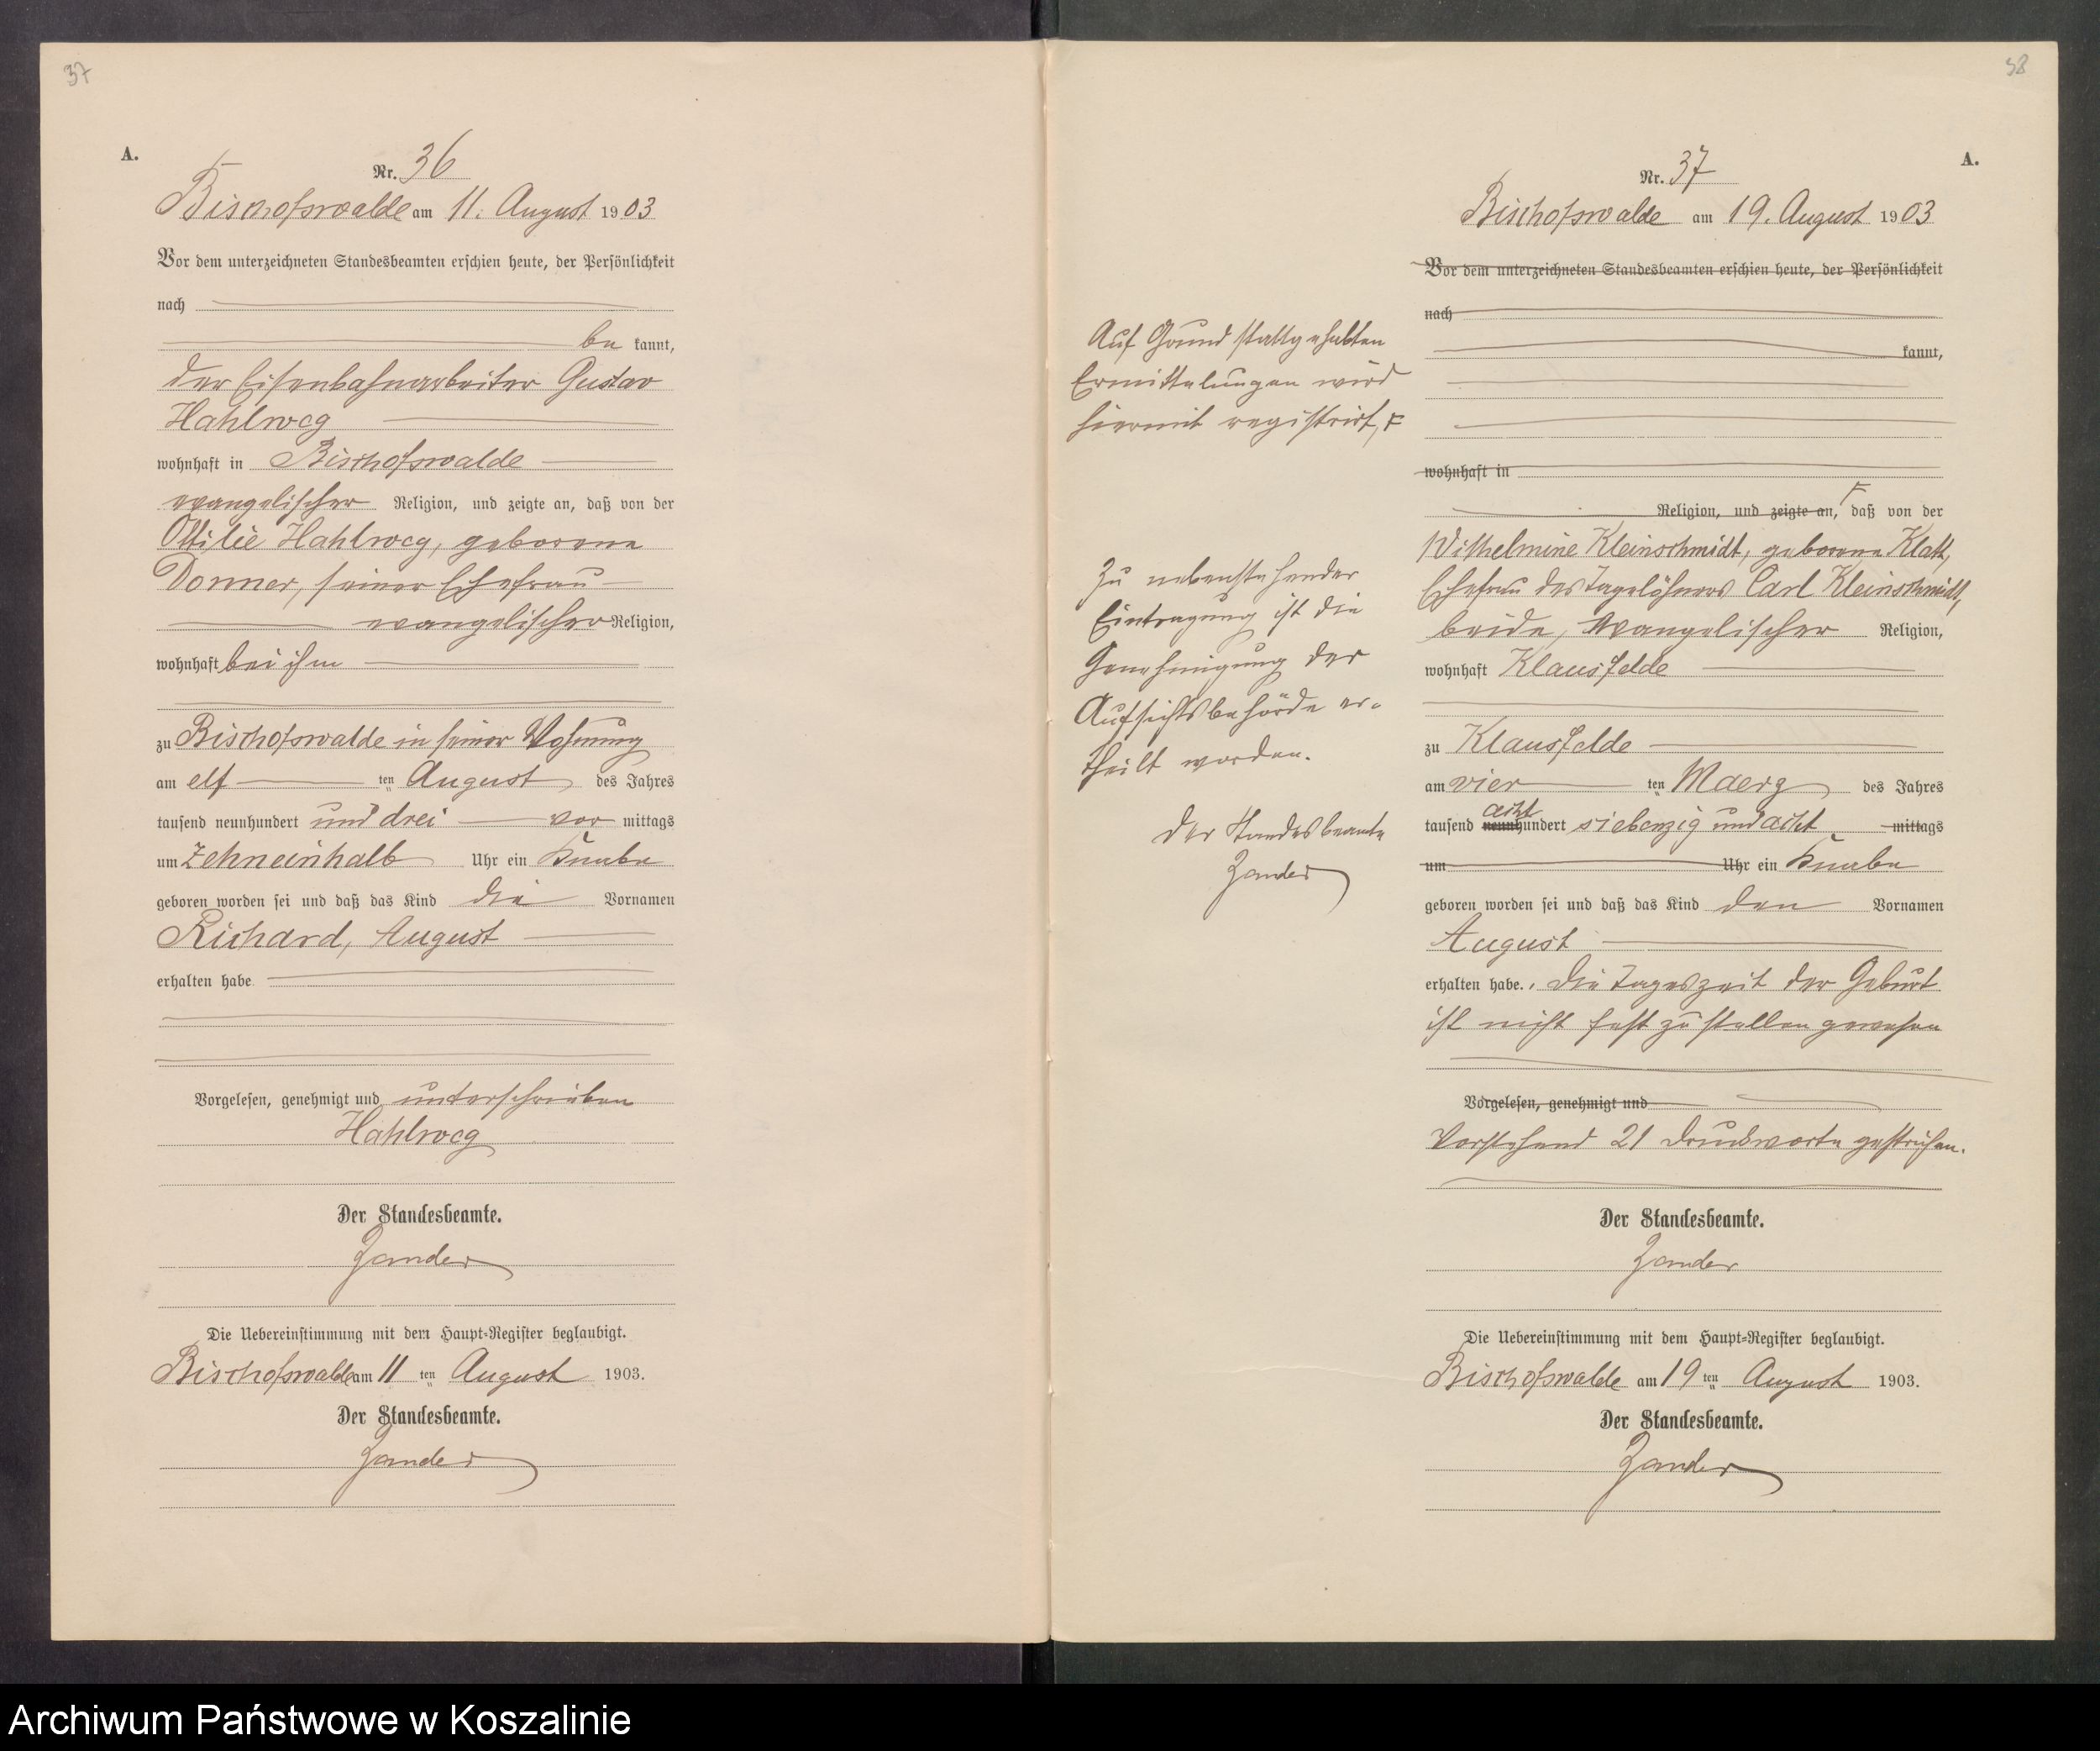 37
A.
Nr. 36
Bischofswalde am 11. August 1903
Vor dem unterzeichneten Standesbeamten erschien heute, der Persönlichkeit
nach
be kannt,
der Eisenbahnarbeiter Gustav
Hahlweg
wohnhaft in Bischofswalde
evangelischer Religion, und zeigte an, daß von der
Ottilie Hahlweg, geborene
Donner, seiner Ehefrau
evangelischer Religion,
wohnhaft bei ihm
zu Bischofswalde in seiner Wohnung
am elf ten August des Jahres
tausend neunhundert und drei vor mittags
um zehneinhalb Uhr ein Knabe
geboren worden sei und daß das Kind die Vornamen
Richard, August
erhalten habe
Vorgelesen, genehmigt und unterschrieben
Hahlweg
Der Standesbeamte.
Zander
Die Uebereinstimmung mit dem Haupt-Register beglaubigt.
Bischofswalde am 11 ten August 1903.
Der Standesbeamte.
Zander
38
A.
Nr. 37
Bischofswalde am 19. August 1903
Vor dem unterzeichneten Standesbeamten erschien heute, der Persönlichkeit
nach
kannt,
wohnhaft in
Religion, und zeigte an, F daß von der
Wilhelmine Kleinschmidt, geborene Klatt,
Ehefrau des Tagelöhners Carl Kleinschmidt,
beide, evangelischer Religion,
wohnhaft Klausfelde
zu Klausfelde
am vier ten Maerz des Jahres
tausend neunhundert acht siebenzig und acht mittags
um Uhr ein Knabe
geboren worden sei und daß das Kind den Vornamen
August
erhalten habe. Die Tageszeit der Geburt
ist nicht fest zu stellen gewesen
Vorgelesen, genehmigt und
Vorstehend 21 Druckworte gestrichen.
Der Standesbeamte.
Zander
Die Uebereinstimmung mit dem Haupt-Register beglaubigt.
Bischofswalde am 19 ten August 1903.
Der Standesbeamte.
Zander
Auf Grund stattgehabten
Ermittelungen wird
hiermit registrirt, F
Zu nebenstehender
Eintragung ist die
Genehmigung der
Aufsichtsbehörde er-
theilt worden.
Der Standesbeamte
Zander
Archiwum Państwowe w Koszalinie